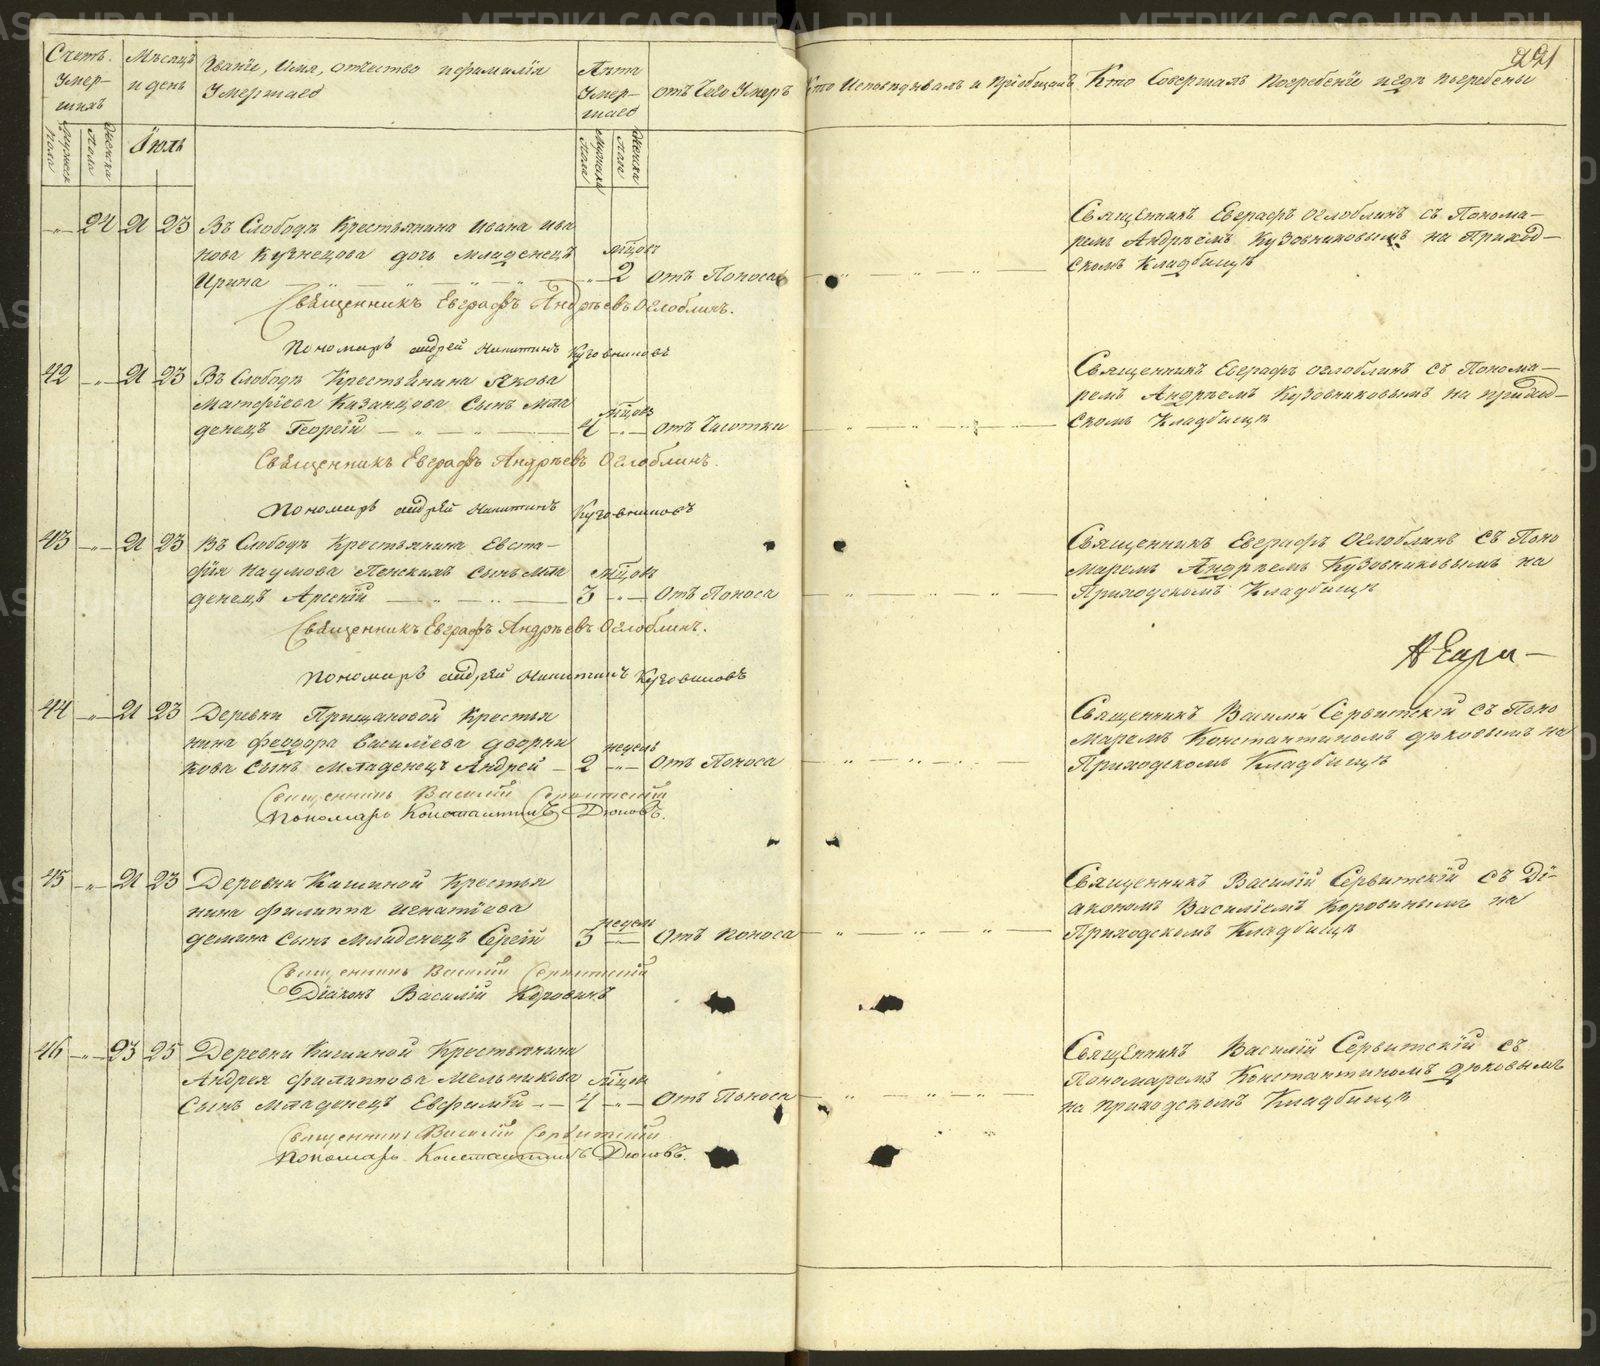 Счетъ Умер- шихъ
Мужеск пола
Женска пола
Мѣсяцъ и день
Июль
Званіе, Имя, отчество и фамилія Умершаго
Лѣта Умер- шаго
Мужеска пола
Женска пола
отъ Чего Умеръ
Кто Исповѣдывалъ и Пріобщалъ
Кто Совершалъ Погребеніе и гдѣ погребены
221
24 21 23 Въ Слободѣ Крестьянина Ивана Ива
нова Кузнецова дочь младенецъ мѣцовъ
Ирина 2 отъ Поноса
Священникъ Евграфъ Андрѣевъ Оглоблинъ.
Пономарь Андрей Никитинъ Кузовниковъ
Священникъ Евграфъ Оглоблинъ съ Понома-
ремъ Андрѣемъ Кузовниковымъ на Приход-
скомъ Кладбищѣ
42 21 23 Въ Слободѣ Крестьянина Якова
Матфіева Казанцова Сынъ Мла мѣцовъ
денецъ Георгій 4 отъ Чисотки
Священникъ Евграфъ Андрѣевъ Оглоблинъ.
Пономарь Андрей Никитинъ Кузовниковъ
Священникъ Евграфъ Оглоблинъ съ Понома-
ремъ Андрѣемъ Кузовниковымъ на приход-
скомъ Кладбищѣ
43 21 23 Въ Слободѣ Крестьянина Евста-
фія Наумова Пенскихъ сынъ мла мѣцовъ
денецъ Арсеній 3 Отъ Поноса
Священникъ Евграфъ Андрѣевъ Оглоблинъ.
Пономарь Андрей Никитинъ Кузовниковъ
Священникъ Евграфъ Оглоблинъ съ Поно
маремъ Андрѣемъ Кузовниковымъ на
Приходскомъ Кладбищѣ
44 21 23 Деревни Прищановой Крестья
нина Феодора Василіева Дворни недель
кова Сынъ Младенецъ Андрей 2 Отъ Поноса
Священникъ Василій Сервитскій
Пономарь Константинъ Дюковъ.
Священникъ Василій Сервитскій съ Поно
маремъ Константиномъ Дюковымъ на
Приходскомъ Кладбищѣ
45 21 23 Деревни Кашиной Крестья
нина Филиппа Игнатіева недели
Демина Сынъ Младенецъ Сергій 3 Отъ Поноса
Священникъ Василій Сервитскій
Діаконъ Василій Коровинъ
Священникъ Василій Сервитскій съ Ді-
акономъ Василіемъ Коровинымъ на
Приходскомъ Кладбищѣ
46 23 25 Деревни Кашиной Крестьянина
Андрея Филиппова Мельникова мѣцов
Сынъ Младенецъ Евфимій 4 Отъ Поноса
Священникъ Василій Сервитскій
Пономарь Константинъ Дюковъ.
Священникъ Василій Сервитскій съ
Пономаремъ Константиномъ Дюковымъ
на приходскомъ Кладбищѣ
METRIKI.GASO-URAL.RU